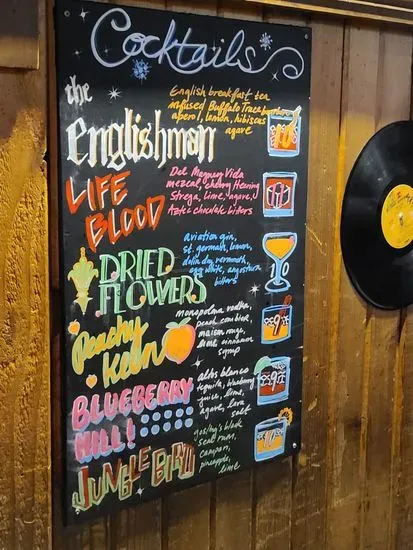 Cocktails
the
Englishman
English breakfast tea
infused Buffalo Trace bourbon,
aperol, lemon, hibiscus
agave
10
LIFE
BLOOD
Del Maguey Vida
mezcal, cherry Heering
Strega, lime, agave,
Aztec chocolate bitters
DRIED
FLOWERS
aviation gin,
st. germain, lemon,
dolin dry vermouth,
egg white, angostura
bitters
Peachy
Keen
monopolowa vodka,
peach combier,
maison rouge,
lime cinnamon
syrup
9
BLUEBERRY
HILL!
altos blanco
tequila, blueberry
juice, lime,
agave, lava
salt
9
JUNGLE BIRD
gosling's black
seal rum,
campari,
pineapple,
lime